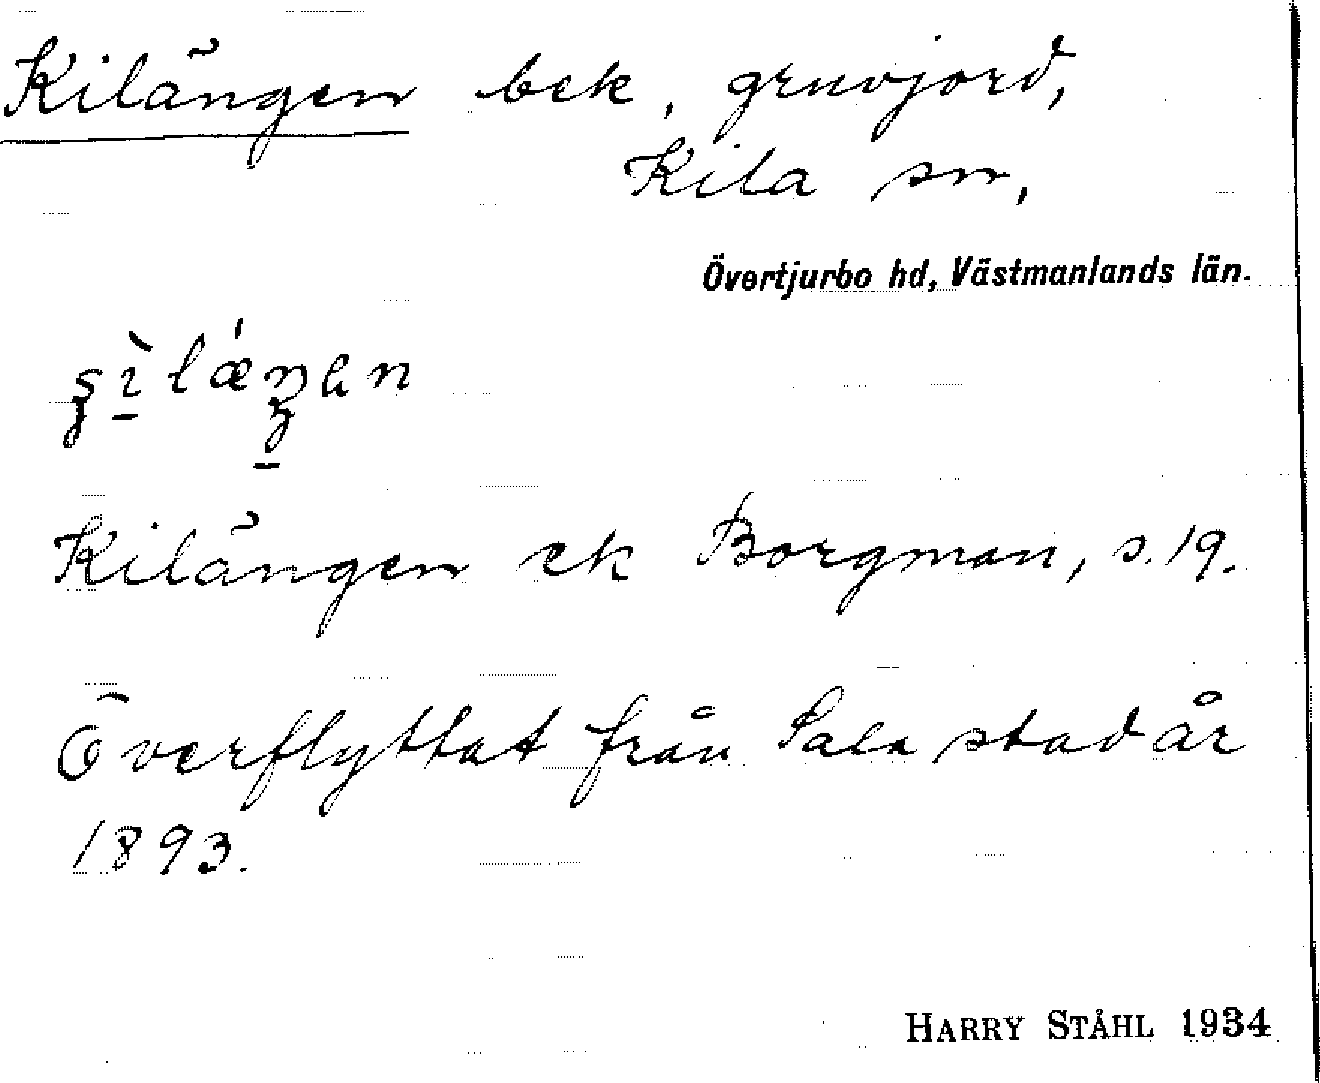 Kilängen bek, gruvjord,
Kila sn,
Övertjurbo hd, Västmanlands län.
Kilängen ek Borgman, s. 19.
Överflyttat från Sala stad år
1893.
HARRY STÅHL 1934